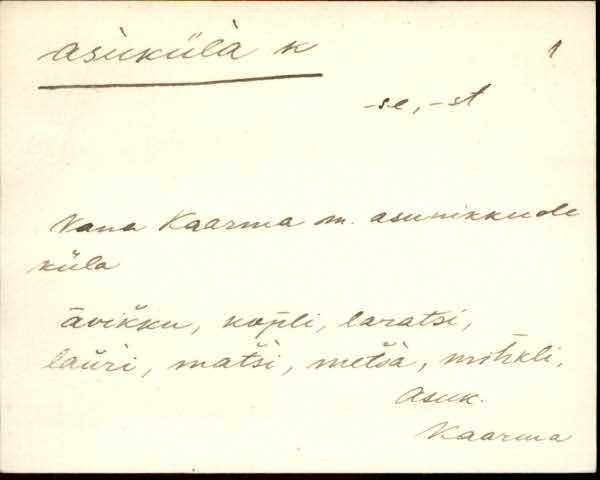 asuküla k 1
-se, -st
Vana Kaarma m. asunikkude
küla
āvikku, kopli, laratsi,
lauri, matsi, metsa, mihkli,
Asuk.
Kaarma